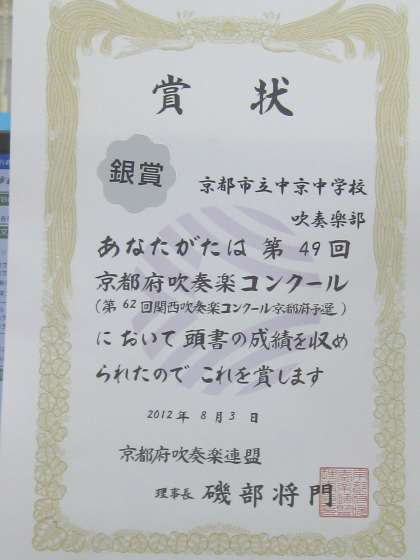 賞状
銀賞
京都市立中京中学校
吹奏楽部
あなたがたは 第49回
京都府吹奏楽コンクール
(第62回関西吹奏楽コンクール京都府予選)
において頭書の成績を収め
られたので これを賞します
2012年 8月3日
京都府吹奏楽連盟
理事長 磯部将門